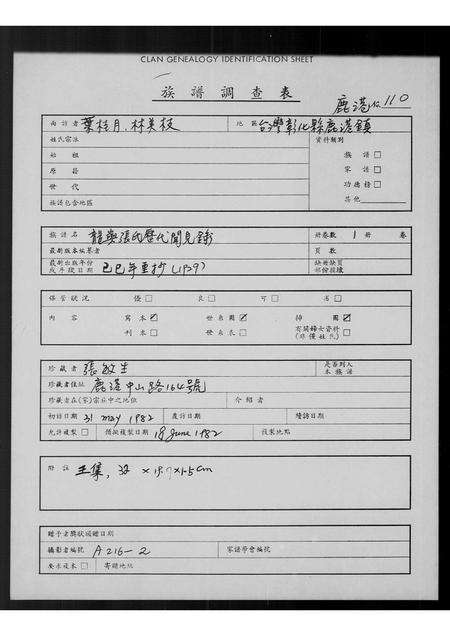 CLAN GENEALOGY IDENTIFICATION SHEET
族譜調查表
鹿港 110
面訪者 葉桂月. 林美枝 地區 台灣彰化縣鹿港鎮
姓氏宗派 資料類別
始祖 族譜 □
原籍 家譜 □
世代 功德榜 □
族譜包含地區 其他
族譜名 張氏歷代聞見錄 冊卷數 1 冊 卷
最新版本編纂者 頁數
最新出版年份或手錄日期 己巳年重抄 (1929) 缺冊缺頁部份捐壞
保管狀況 優 □ 良 □ 可 □ 劣 □
內容 寫本 ☑ 世系圖 ☑ 掃圖 ☑
刊本 □ 世系表 □ 有關婦女資料(非僅姓氏) □
珍藏者 張敏生 是否列入本族譜
珍藏者住址 鹿港中山路164號
珍藏者在(家)宗族中之地位 介紹者
初訪日期 31 may 1982 複訪日期 續訪日期
允許複製 □ 預擬複製日期 18 June 1982 複製地點
附註
贈予者獎狀頒贈日期
攝影者編號 A216-2 家譜學會編號
要求複本 □ 寄贈地址